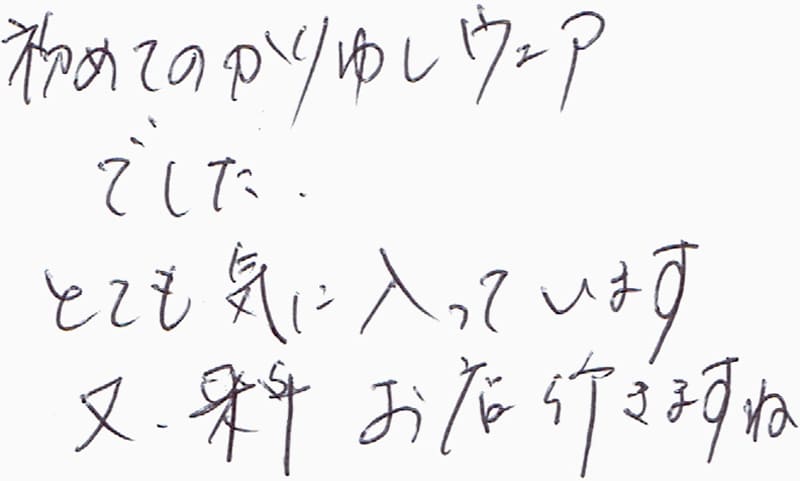 初めてのかりゆしウェア
でした.
とても気に入っています
又. お店行きますね